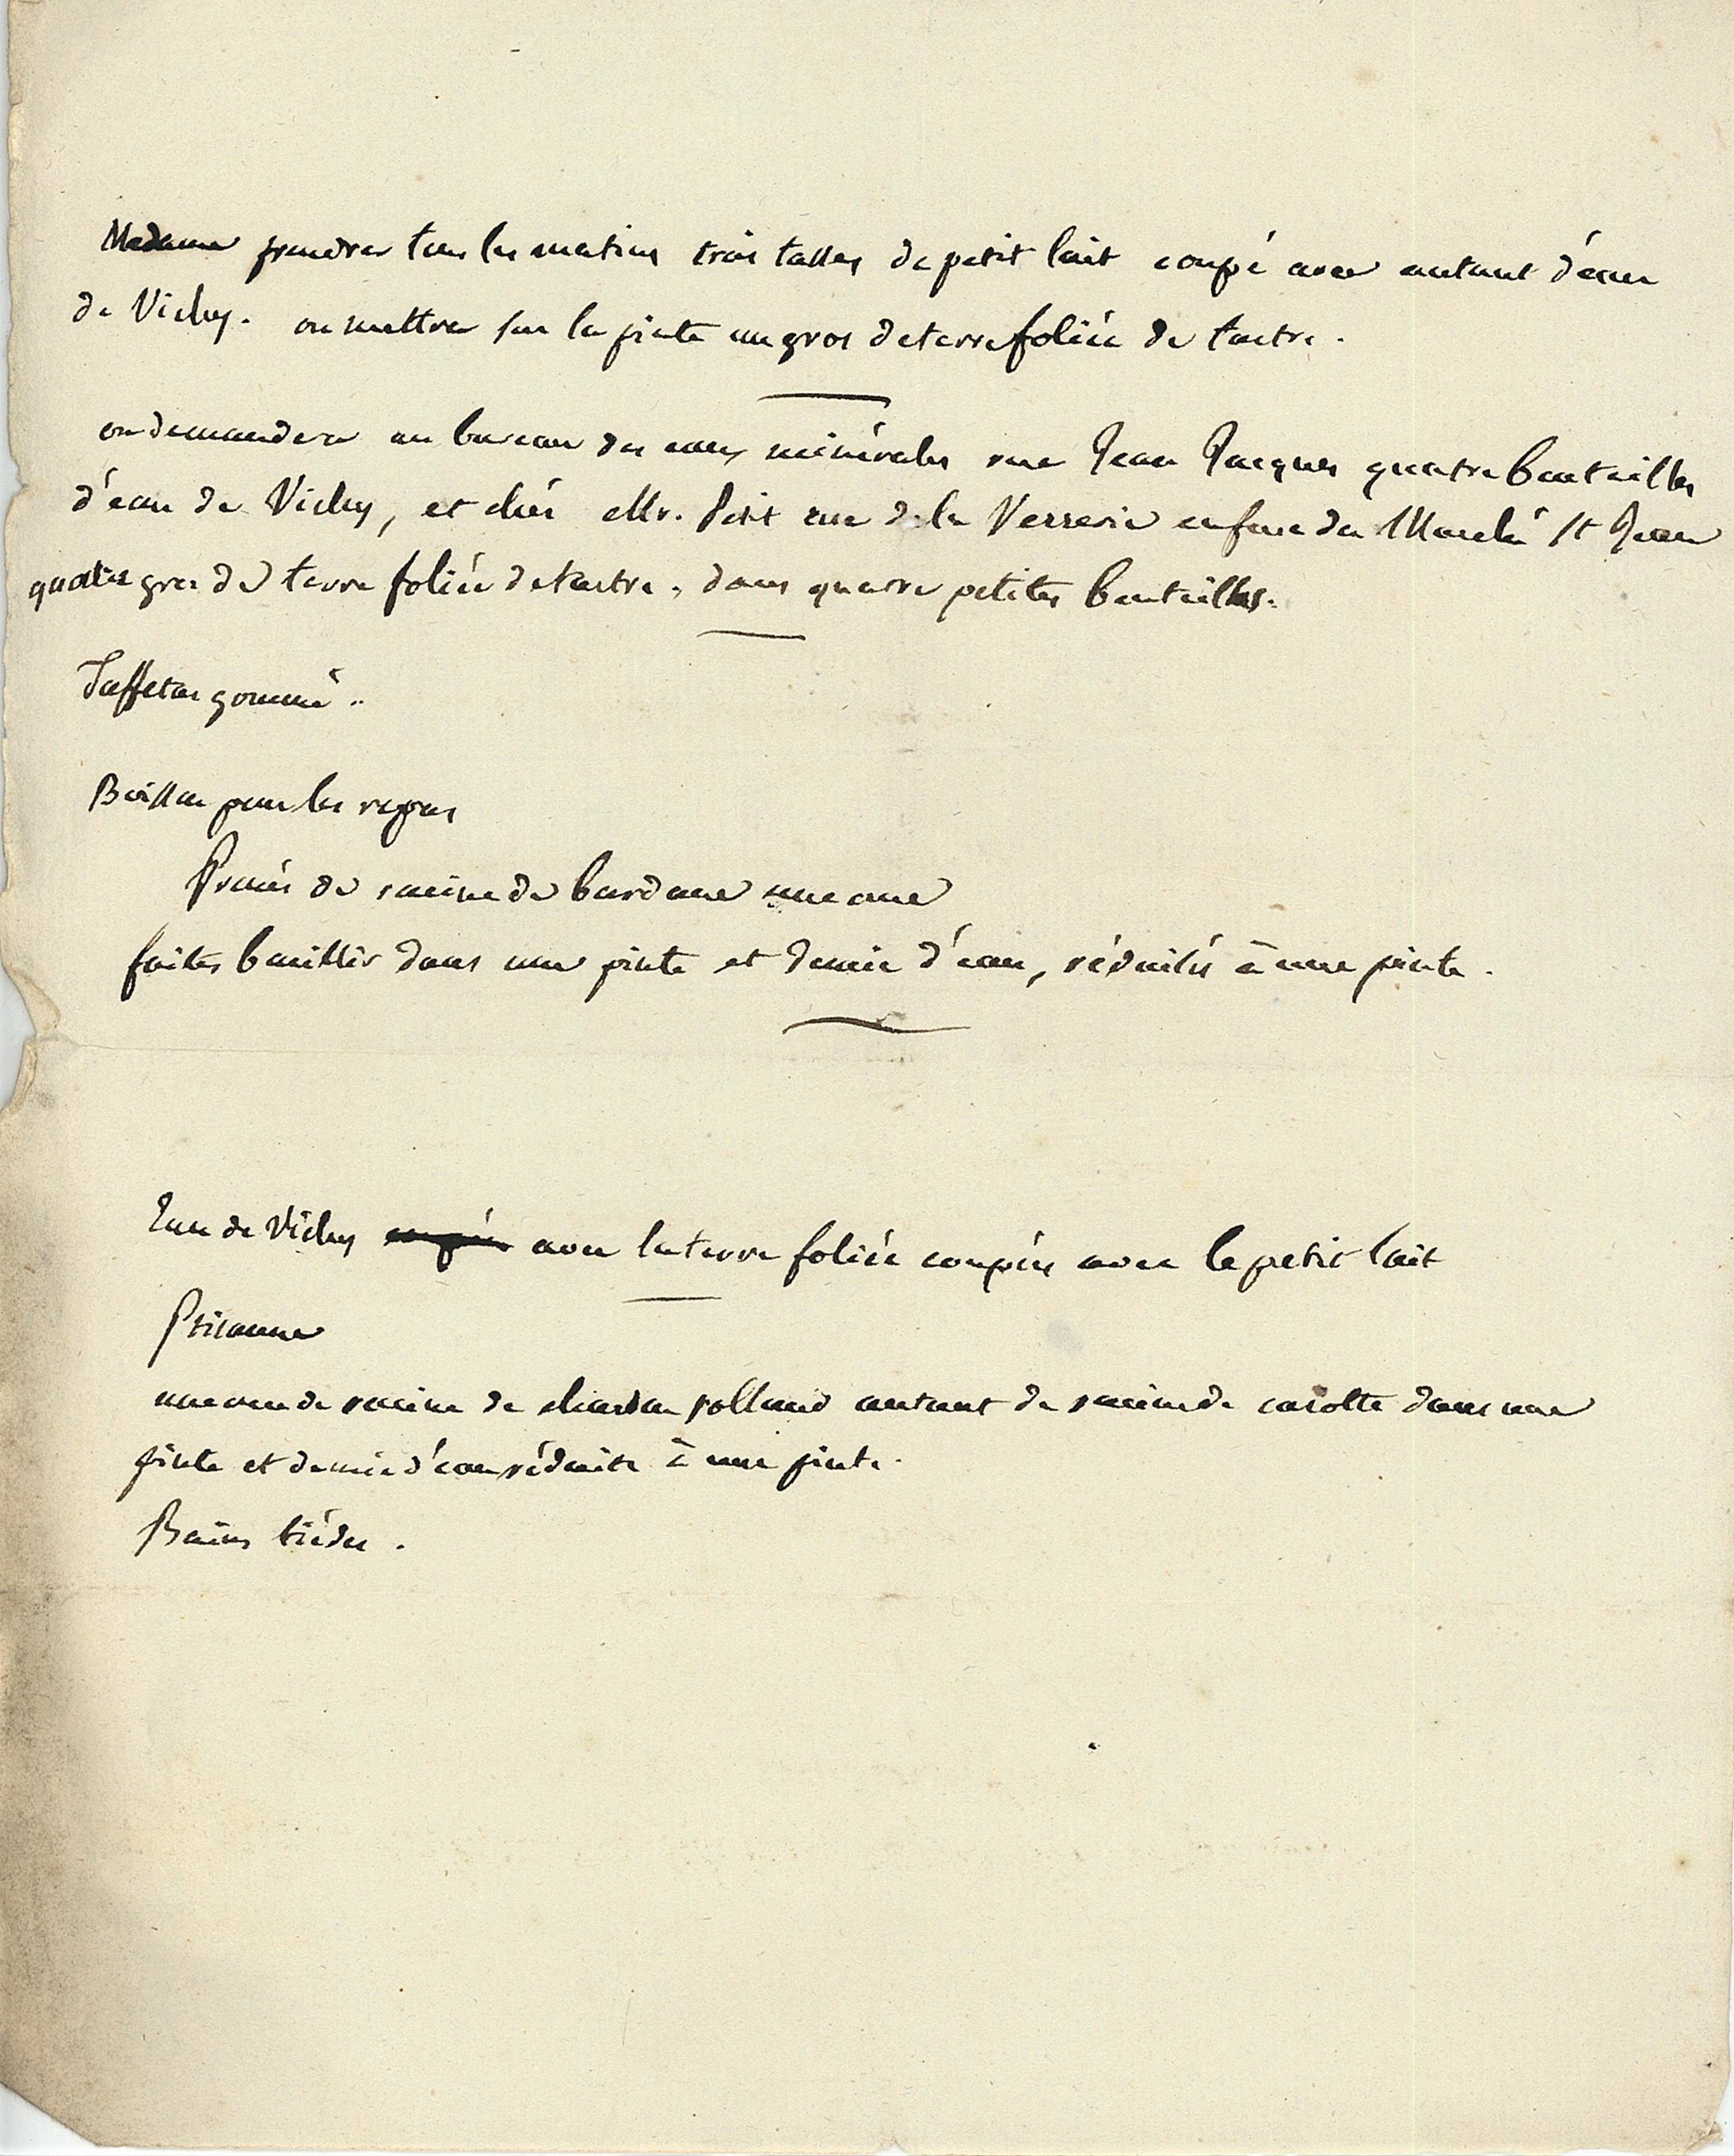 Madame prendra tous les matins trois tasses de petit lait coupé avec autant d'eau
de Vichy. on mettra sur la pinte un gros de terre foliée de tartre.
on demandera au bureau des eaux minérales rue Jean Jacques quatre bouteilles
d'eau de Vichy, et chés Mr. Petit rue de la Verrerie en face du Marché St Jean
quatre gros de terre foliée de tartre, dans quatre petites bouteilles.
Taffetas gommé.
Boisson pour les repas
Prenés de racine de bardane une once
faites bouillir dans une pinte et demie d'eau, réduités à une pinte.
Eau de Vichy coupée avec la terre foliée coupée avec le petit lait
Ptisanne
une once de racine de chardon rolland autant de racine de carotte dans une
pinte et demie d'eau réduite à une pinte.
Bains tièdes.